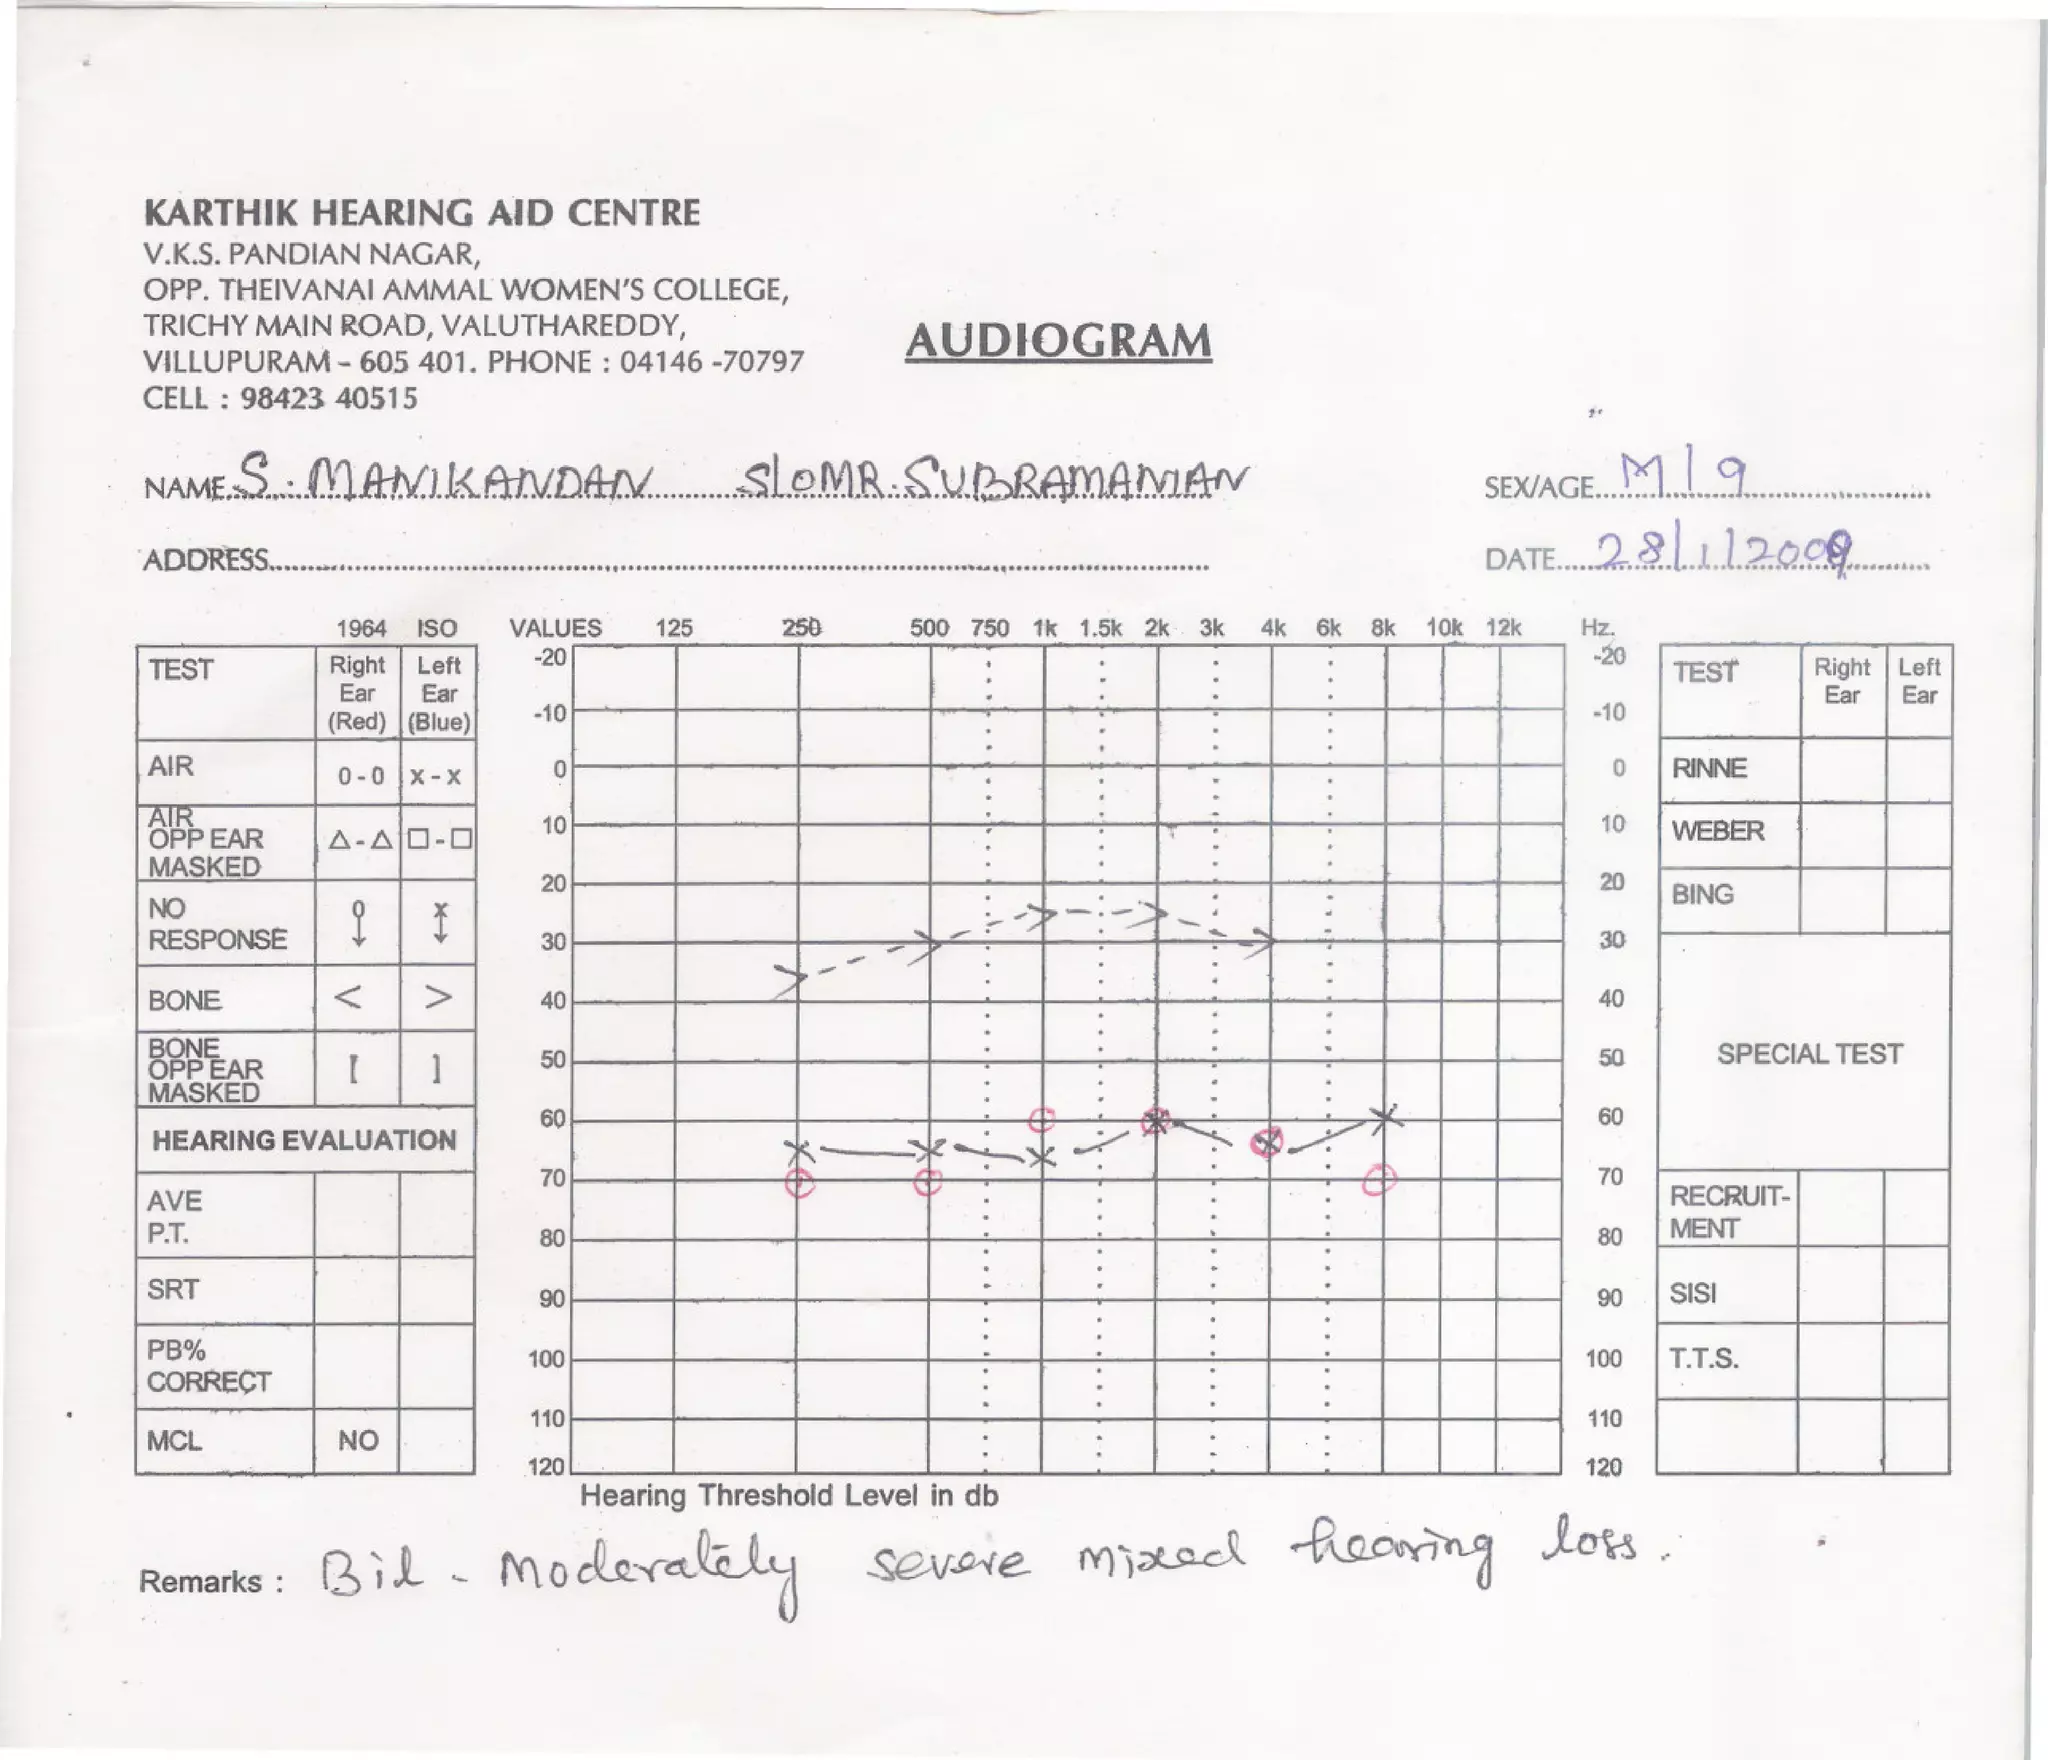 KARTHIK HEARING AID CENTRE
V.K.S. PANDIAN NAGAR,
OPP. THEIVANAI AMMAL WOMEN'S COLLEGE,
TRICHY MAIN ROAD, VALUTHAREDDY,
VILLUPURAM - 605 401. PHONE : 04146 -70797
CELL : 98423 40515
AUDIOGRAM
NAME S. MANIKANDAN S/o MR. SUBRAMANIAN
SEX/AGE M / 9
ADDRESS
DATE 28/1/2009
1964 ISO
TEST Right Ear (Red) Left Ear (Blue)
AIR 0-0 x-x
AIR OPP EAR MASKED △-△ □-□
NO RESPONSE 0 x
BONE < >
BONE OPP EAR MASKED [ ]
HEARING EVALUATION
AVE P.T.
SRT
PB% CORRECT
MCL NO
VALUES 125 250 500 750 1k 1.5k 2k 3k 4k 6k 8k 10k 12k Hz.
-20 -20
-10 -10
0 0
10 10
20 20
30 30
40 40
50 50
60 60
70 70
80 80
90 90
100 100
110 110
120 120
Hearing Threshold Level in db
TEST Right Ear Left Ear
RINNE
WEBER
BING
SPECIAL TEST
RECRUIT-
MENT
SISI
T.T.S.
Remarks : Bil - Moderately severe mixed hearing loss.